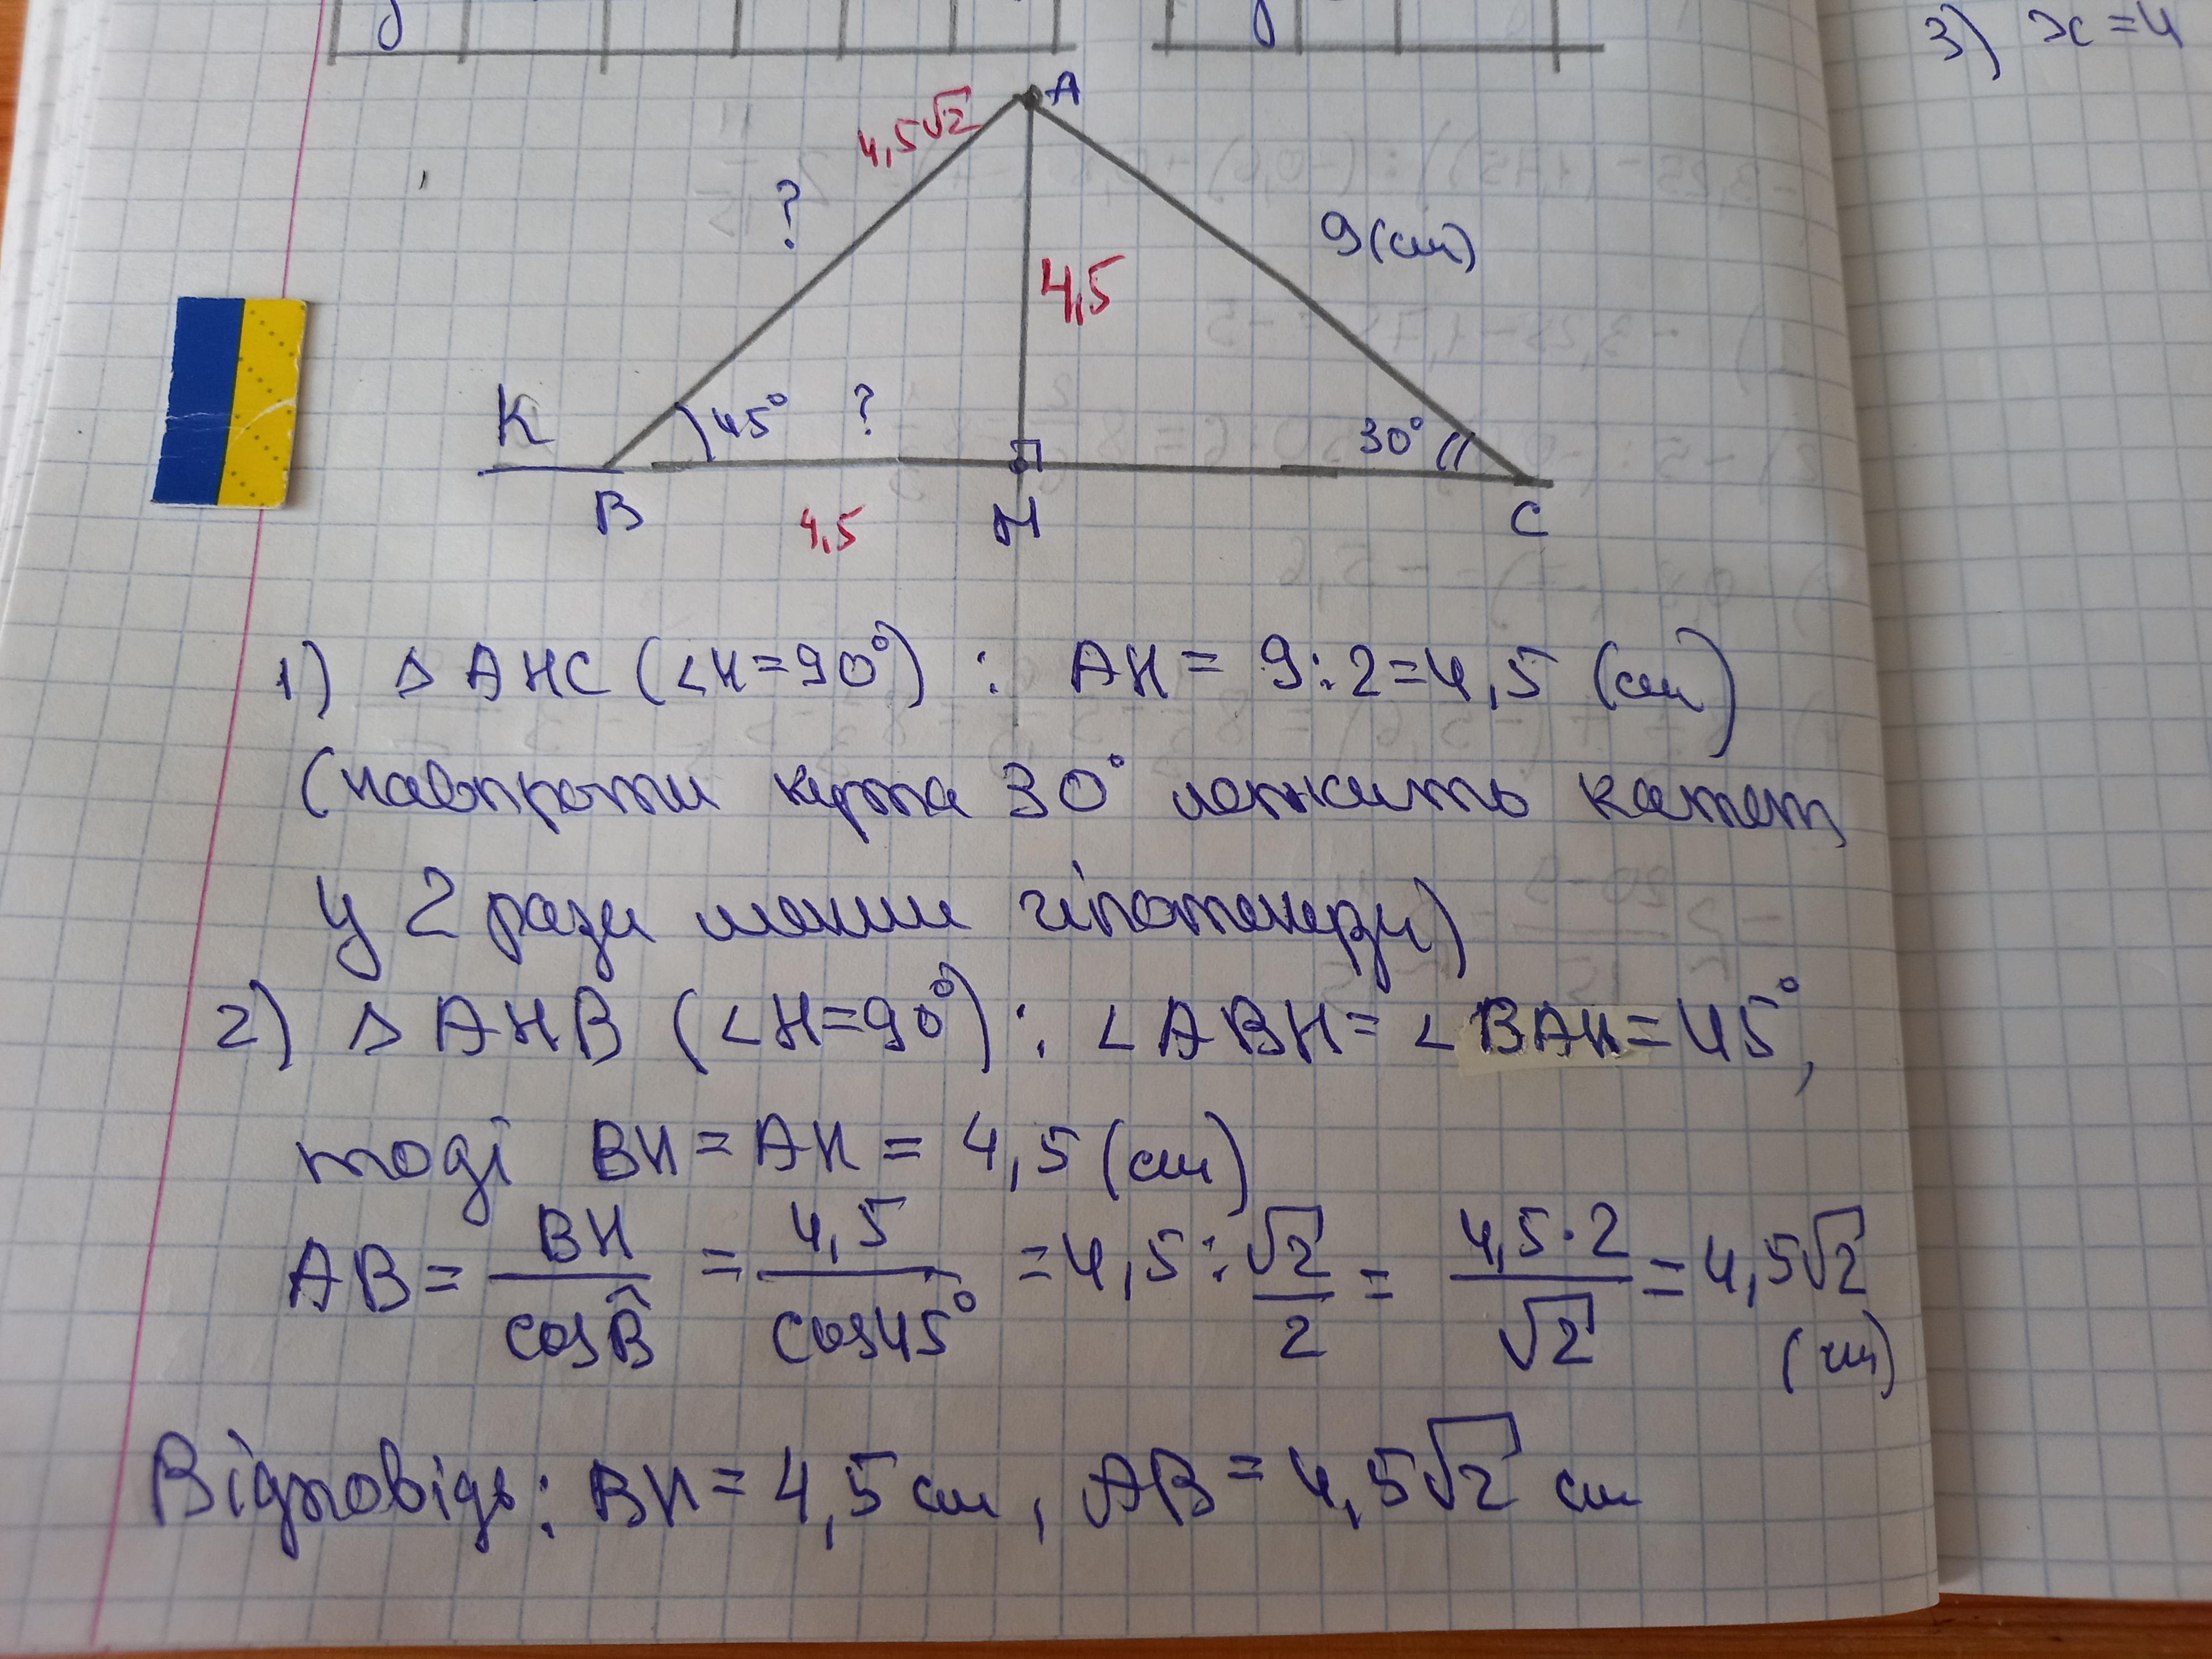 3) x=4
A
4,5√2
?
9(см)
4,5
K
45°
?
30°
B
4,5
H
C
1) △AHC (∠H=90°) : AH = 9:2=4,5 (см)
(навпроти кута 30° лежить катет
у 2 рази менши гіпотенузи)
2) △AHB (∠H=90°) : ∠ABH = ∠BAH = 45°,
тоді BH = AH = 4,5 (см)
AB = BH/cosB̂ = 4,5/cos45° = 4,5 : √2/2 = 4,5·2/√2 = 4,5√2
(см)
Відповідь: BH = 4,5 см, AB = 4,5√2 см